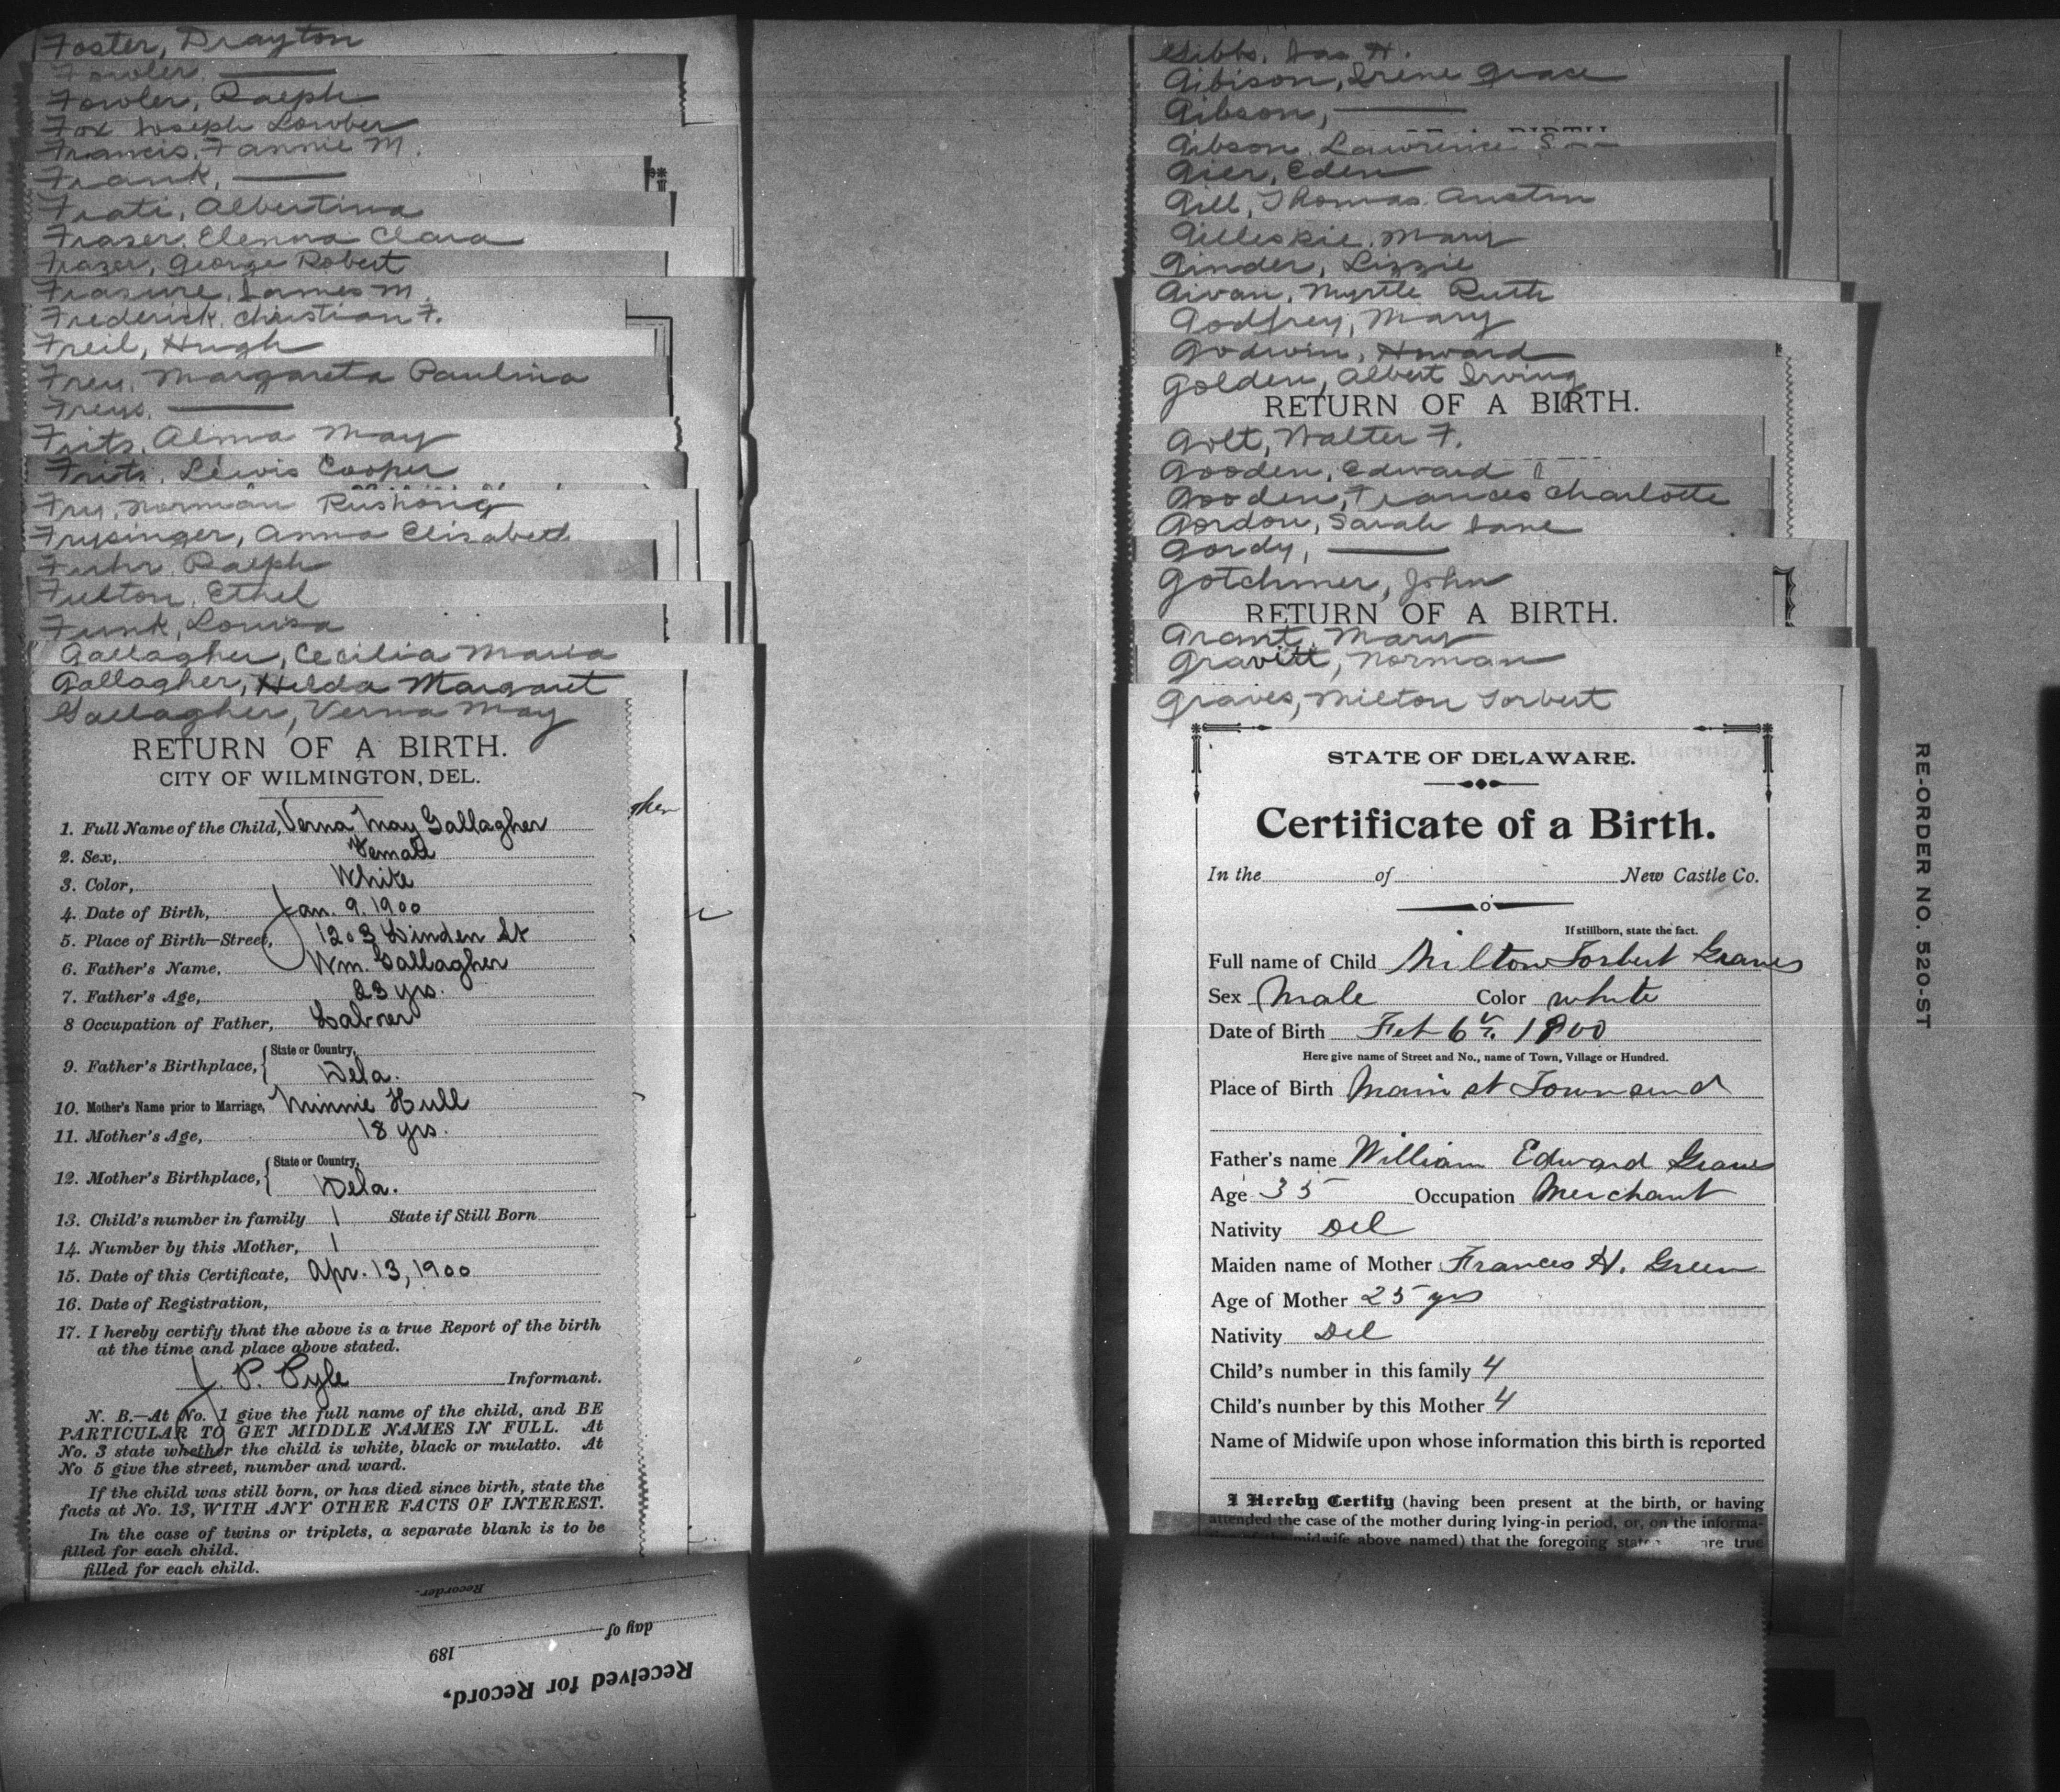 Foster, Drayton
Fowler, ———
Fowler, Ralph
Fox Joseph Lowber
Francis, Fannie M.
Frank, ———
Frati, Albertina
Fraser, Elenora Clara
Frazer, George Robert
Frasure, James M.
Frederick, Christian F.
Freil, Hugh
Frey, Margareta Paulina
Freys, ———
Frits, Alma May
Frits, Lewis Cooper
Fry, Norman Rushong
Frysinger, Anna Elizabeth
Fuhr, Ralph
Fulton, Ethel
Funk, Louisa
Gallagher, Cecilia Maria
Gallagher, Hilda Margaret
Gallagher, Verna May
RETURN OF A BIRTH.
CITY OF WILMINGTON, DEL.
1. Full Name of the Child, Verna May Gallagher
2. Sex, Female
3. Color, White
4. Date of Birth, Jan. 9, 1900
5. Place of Birth—Street, 1203 Linden St
6. Father's Name, Wm. Gallagher
7. Father's Age, 23 yrs.
8 Occupation of Father, Labrer
9. Father's Birthplace, { State or Country, Dela.
10. Mother's Name prior to Marriage, Minnie Hull
11. Mother's Age, 18 yrs.
12. Mother's Birthplace, { State or Country, Dela.
13. Child's number in family 1 State if Still Born
14. Number by this Mother, 1
15. Date of this Certificate, Apr. 13, 1900
16. Date of Registration,
17. I hereby certify that the above is a true Report of the birth
at the time and place above stated.
J. P. Pyle Informant.
N. B.—At No. 1 give the full name of the child, and BE
PARTICULAR TO GET MIDDLE NAMES IN FULL. At
No. 3 state whether the child is white, black or mulatto. At
No 5 give the street, number and ward.
If the child was still born, or has died since birth, state the
facts at No. 13, WITH ANY OTHER FACTS OF INTEREST.
In the case of twins or triplets, a separate blank is to be
filled for each child.
filled for each child.
gher
Recorder.
day of 189
Received for Record,
Gibbs, Jas H.
Gibison, Irene Grace
Gibson, ———
Gibson, Lawrence S
Gier, Eden
Gill, Thomas Austin
Gilleskie, Mary
Ginder, Lizzie
Givan, Myrtle Ruth
Godfrey, Mary
Godwin, Howard
Golden, Albert Irving
RETURN OF A BIRTH.
Golt, Walter F.
Gooden, Edward
Gooden, Frances Charlotte
Gordon, Sarah Jane
Gordy, ———
Gotchmer, John
RETURN OF A BIRTH.
Grant, Mary
Gravitt, Norman
Graves, Milton Torbert
STATE OF DELAWARE.
Certificate of a Birth.
In the of New Castle Co.
If stillborn, state the fact.
Full name of Child Milton Torbert Graves
Sex Male Color white
Date of Birth Feb 6th 1900
Here give name of Street and No., name of Town, Village or Hundred.
Place of Birth Main st Townsend
Father's name William Edward Graves
Age 35 Occupation Merchant
Nativity Del
Maiden name of Mother Frances H. Green
Age of Mother 25 yrs
Nativity Del
Child's number in this family 4
Child's number by this Mother 4
Name of Midwife upon whose information this birth is reported
I Hereby Certify (having been present at the birth, or having
attended the case of the mother during lying-in period, or, on the informa-
midwife above named) that the foregoing are true
RE-ORDER NO. 520-ST